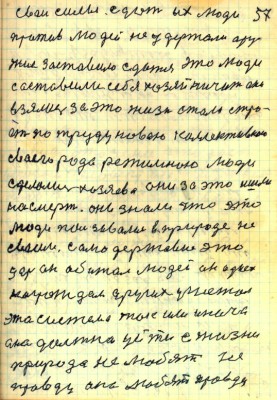 свои силы. сдют их люди 57
против людей не удержали ору-
жия заставило сдатся это люди
составили себя хозяйничать она
взялись за это жизь стало стро-
ят по труду новою коллективною
своего рода режимною люди
сделались хозяева они за это шли
на смерт. они знали что это
люди призовали в природе не
своим. само державие это
он абитал людей он одних
награждал других убивал
эта система тоже или иначе
она должна уйти с жизни
природа не любят не
правду она любят правду